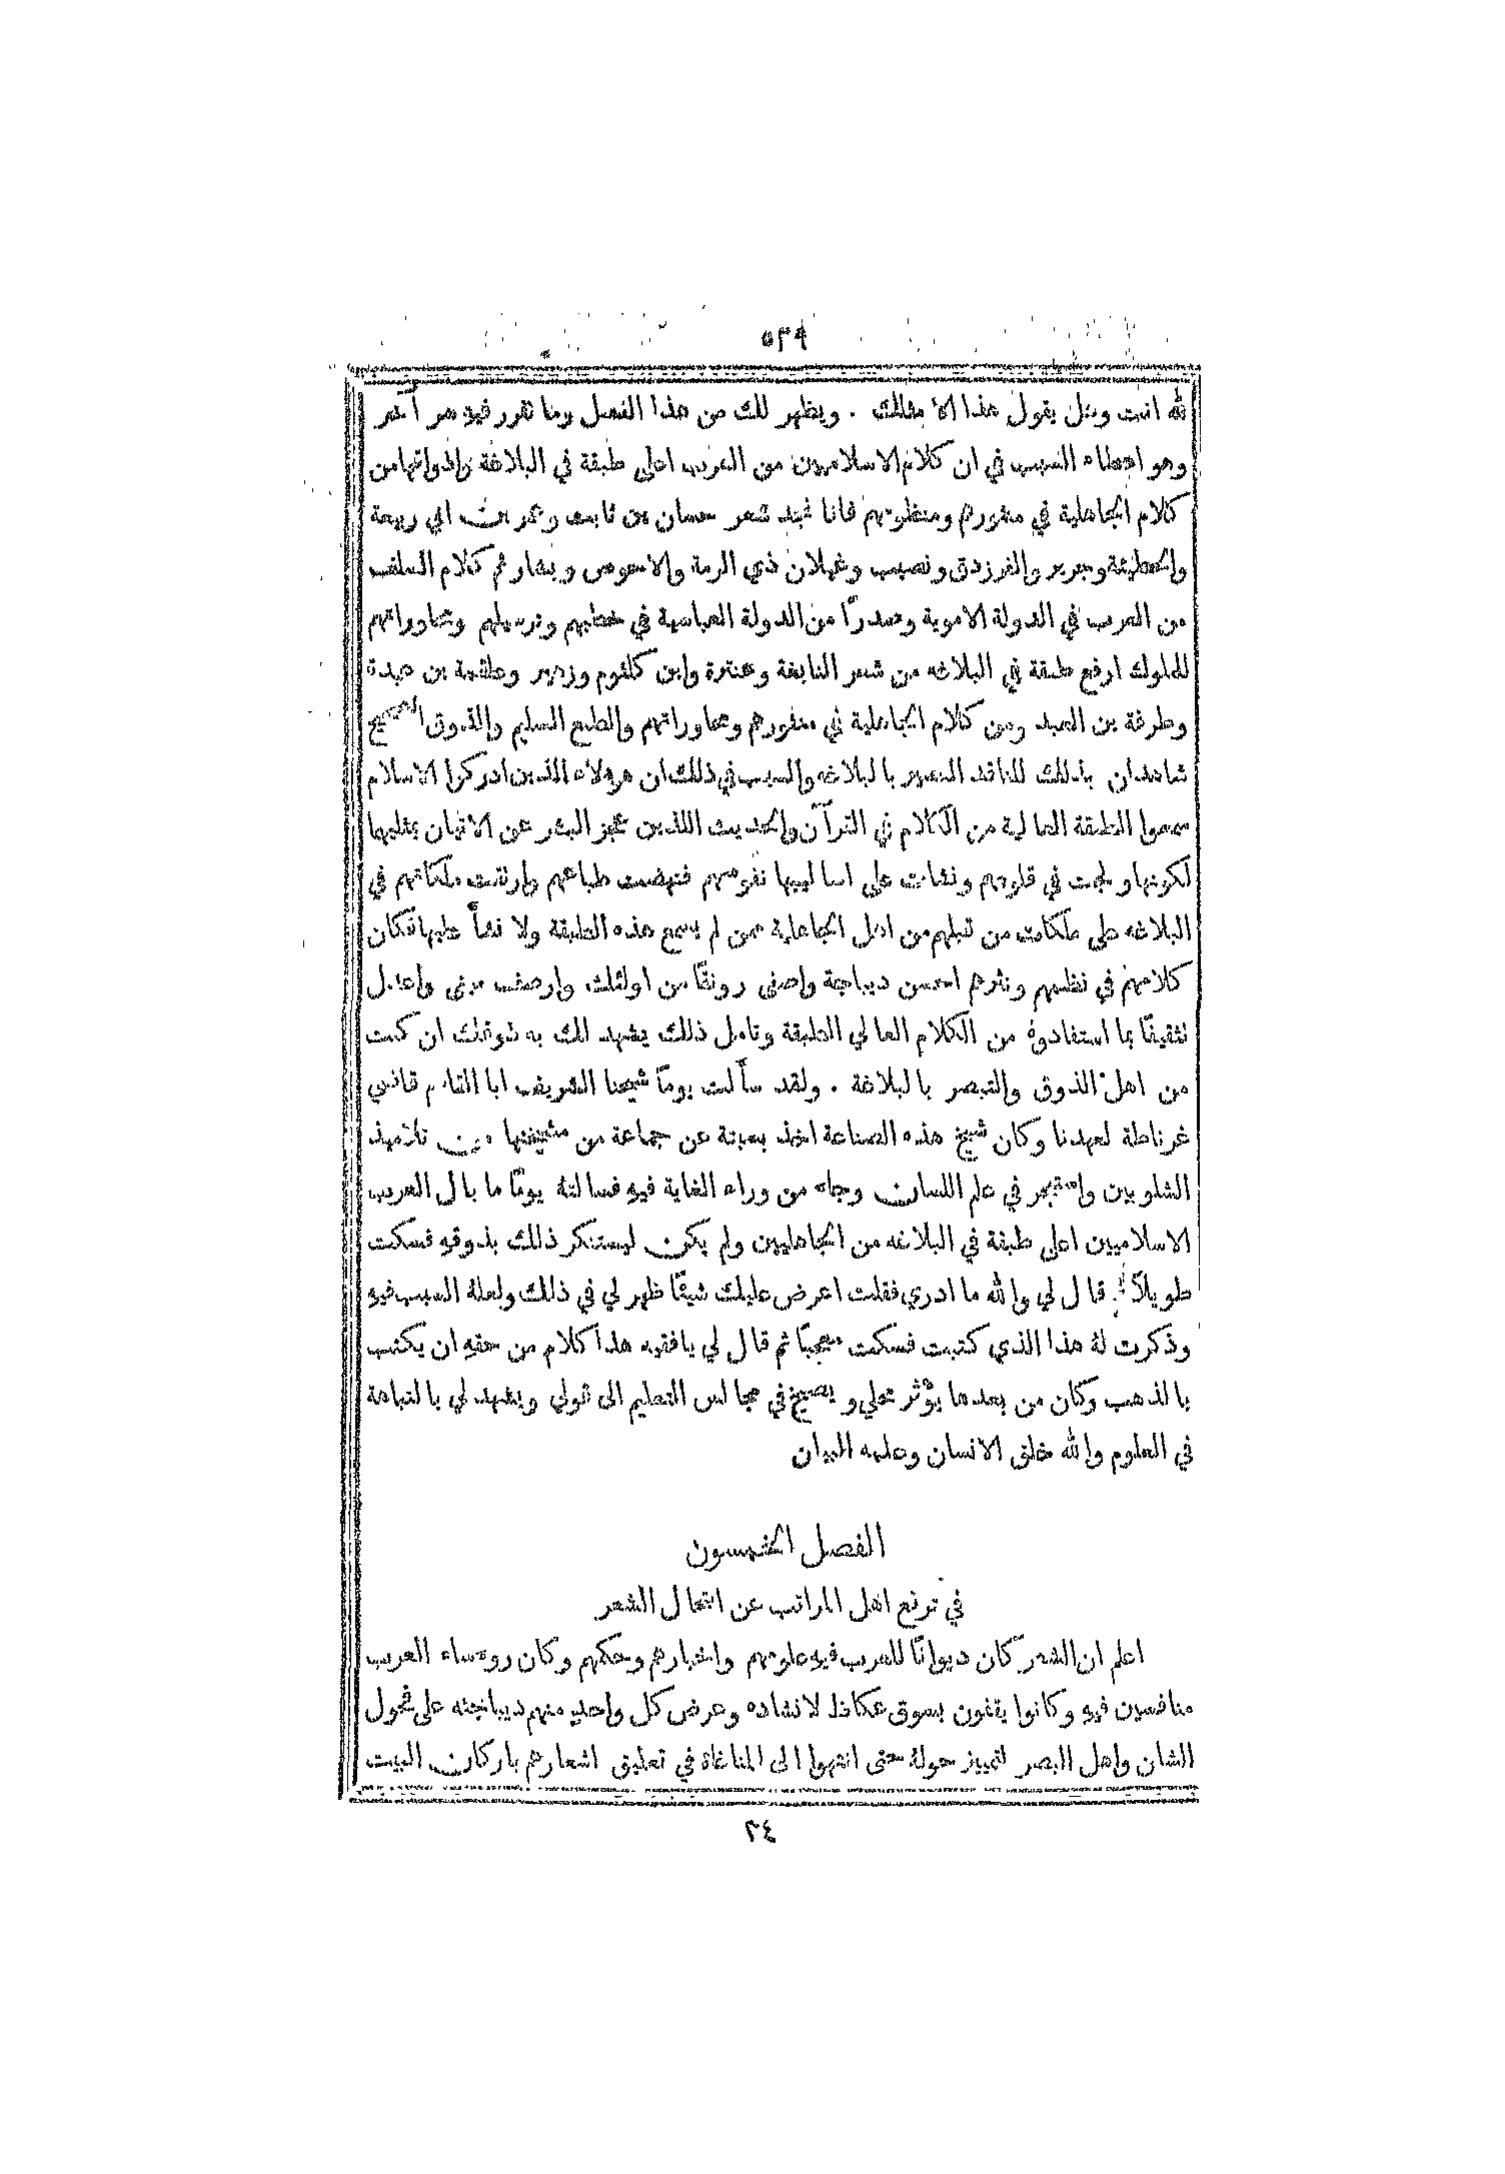 ٥٣٩
لله انت ومثل يقول هذا الا مثلك . ويظهر لك من هذا الفصل وما تقرر فيه سر آخر
وهو اعطاء السبب في ان كلام الاسلاميين من العرب اعلى طبقة في البلاغة واذواقها من
كلام الجاهلية في منثورهم ومنظومهم فانا نجد شعر حسان بن ثابت وعمر بن ابي ربيعة
والحطيئة وجرير والفرزدق ونصيب وغيلان ذي الرمة والاحوص وبشار ثم كلام السلف
من العرب في الدولة الاموية وصدرًا من الدولة العباسية في خطبهم وترسيلهم ومحاوراتهم
للملوك ارفع طبقة في البلاغه من شعر النابغة وعنترة وابن كلثوم وزهير وعلقمة بن عبدة
وطرفة بن العبد ومن كلام الجاهلية في منثورهم ومحاوراتهم والطبع السليم والذوق الصحيح
شاهدان بذلك للناقد البصير بالبلاغه والسبب في ذلك ان هولاء الذين ادركوا الاسلام
سمعوا الطبقة العالية من الكلام في القرآن والحديث اللذين عجز البشر عن الاتيان بمثليهما
لكونها ولجت في قلوبهم ونشات على اساليبها نفوسهم فنهضت طباعهم وارتقت ملكاتهم في
البلاغه على ملكات من قبلهم من اهل الجاهلية ممن لم يسمع هذه الطبقة ولا نشأ عليها فكان
كلامهم في نظمهم ونثرهم احسن ديباجة واصفى رونقًا من اولئك وارصف مبنى واعدل
تثقيفًا بما استفادوه من الكلام العالي الطبقة وتامل ذلك يشهد لك به ذوقك ان كنت
من اهل الذوق والتبصر بالبلاغة . ولقد سألت يومًا شيخنا الشريف ابا القاسم قاضي
غرناطة لعهدنا وكان شيخ هذه الصناعة اخذ بسبتة عن جماعة من مشيختها من تلاميذ
الشلوبين واستبحر في علم اللسان وجاء من وراء الغاية فيه فسالته يومًا ما بال العرب
الاسلاميين اعلى طبقة في البلاغه من الجاهليين ولم يكن ليستنكر ذلك بذوقه فسكت
طويلًا ثم قال لي والله ما ادري فقلت اعرض عليك شيئًا ظهر لي في ذلك ولعله السبب فيه
وذكرت له هذا الذي كتبت فسكت معجبًا ثم قال لي يا فقيه هذا كلام من حقه ان يكتب
بالذهب وكان من بعدها يؤثر محلي ويصيخ في مجالس التعليم الى قولي ويشهد لي بالنباهة
في العلوم والله خلق الانسان وعلمه البيان
الفصل الخمسون
في ترفع اهل المراتب عن انتحال الشعر
اعلم ان الشعر كان ديوانًا للعرب فيه علومهم واخبارهم وحكمهم وكان روءساء العرب
منافسين فيه وكانوا يقفون بسوق عكاظ لانشاده وعرض كل واحد منهم ديباجته على فحول
الشان واهل البصر لتمييز حوله حتى انتهوا الى المناغاة في تعليق اشعارهم باركان البيت
٣٤